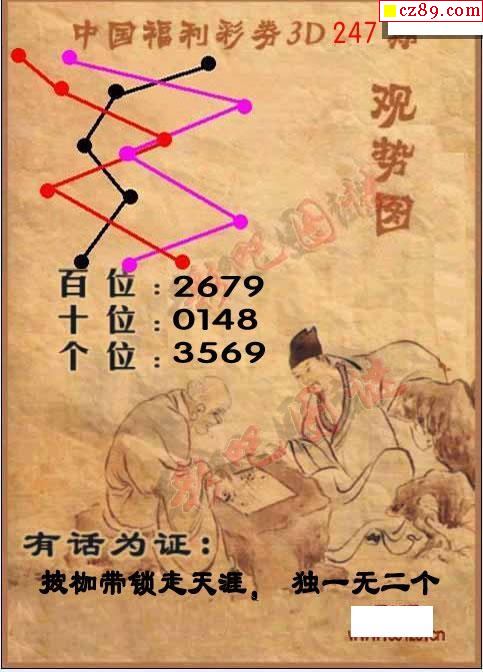 cz89.com
中国福利彩券3D 247
观势图
百位：2679
十位：0148
个位：3569
彩吧图谜
彩吧图谜
有话为证：
披枷带锁走天涯。 独一无二个